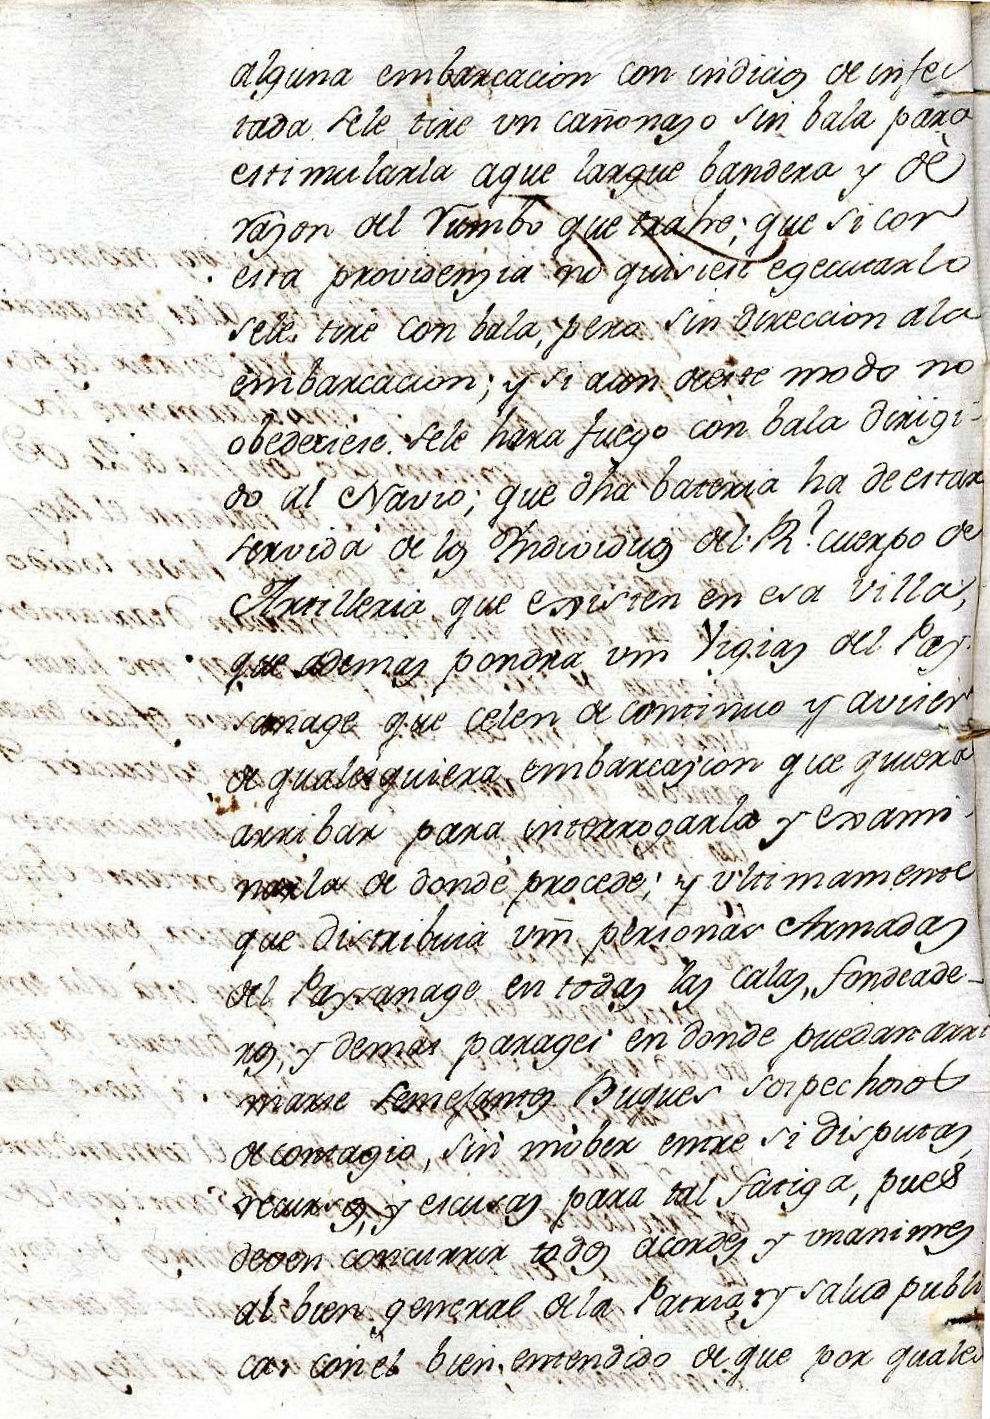 alguna embarcacion con indicios de infec
tada sele tire un cañonaso sin bala para
estimularla aque largue bandera y dè
rason del Rumbo que trahe; que si con
esta providensia no quisiese egecutarlo
sele tire con bala, pero sin direccion ala
embarcacion; y si aun deeste modo no
obedeciese sele hara fuego con bala dirigi-
do al Navio; que dha bateria ha de estar
servida de los Individuos del Rl. cuerpo de
Artilleria que existen en esa Villa;
que ademas pondra vm Vigias del Pay-
sanage que celen de continuo y avisen
de qualesquiera embarcasion que quiera
arribar para interrogarla y exami-
narla de donde procede; y ultimamente
que distribuia vm personas Armadas
del Paysanage en todas las calas, fondeade-
ros, y demas parages en donde puedan arri
marse semejantes Buques sospechosos
de contagio, sin mober entre si disputas,
recursos, y escusas para tal fatiga, pues
deven concurrir todos acordes y unanimes
al bien general dela Patria, y salud publi
ca, con el bien entendido de que por quales